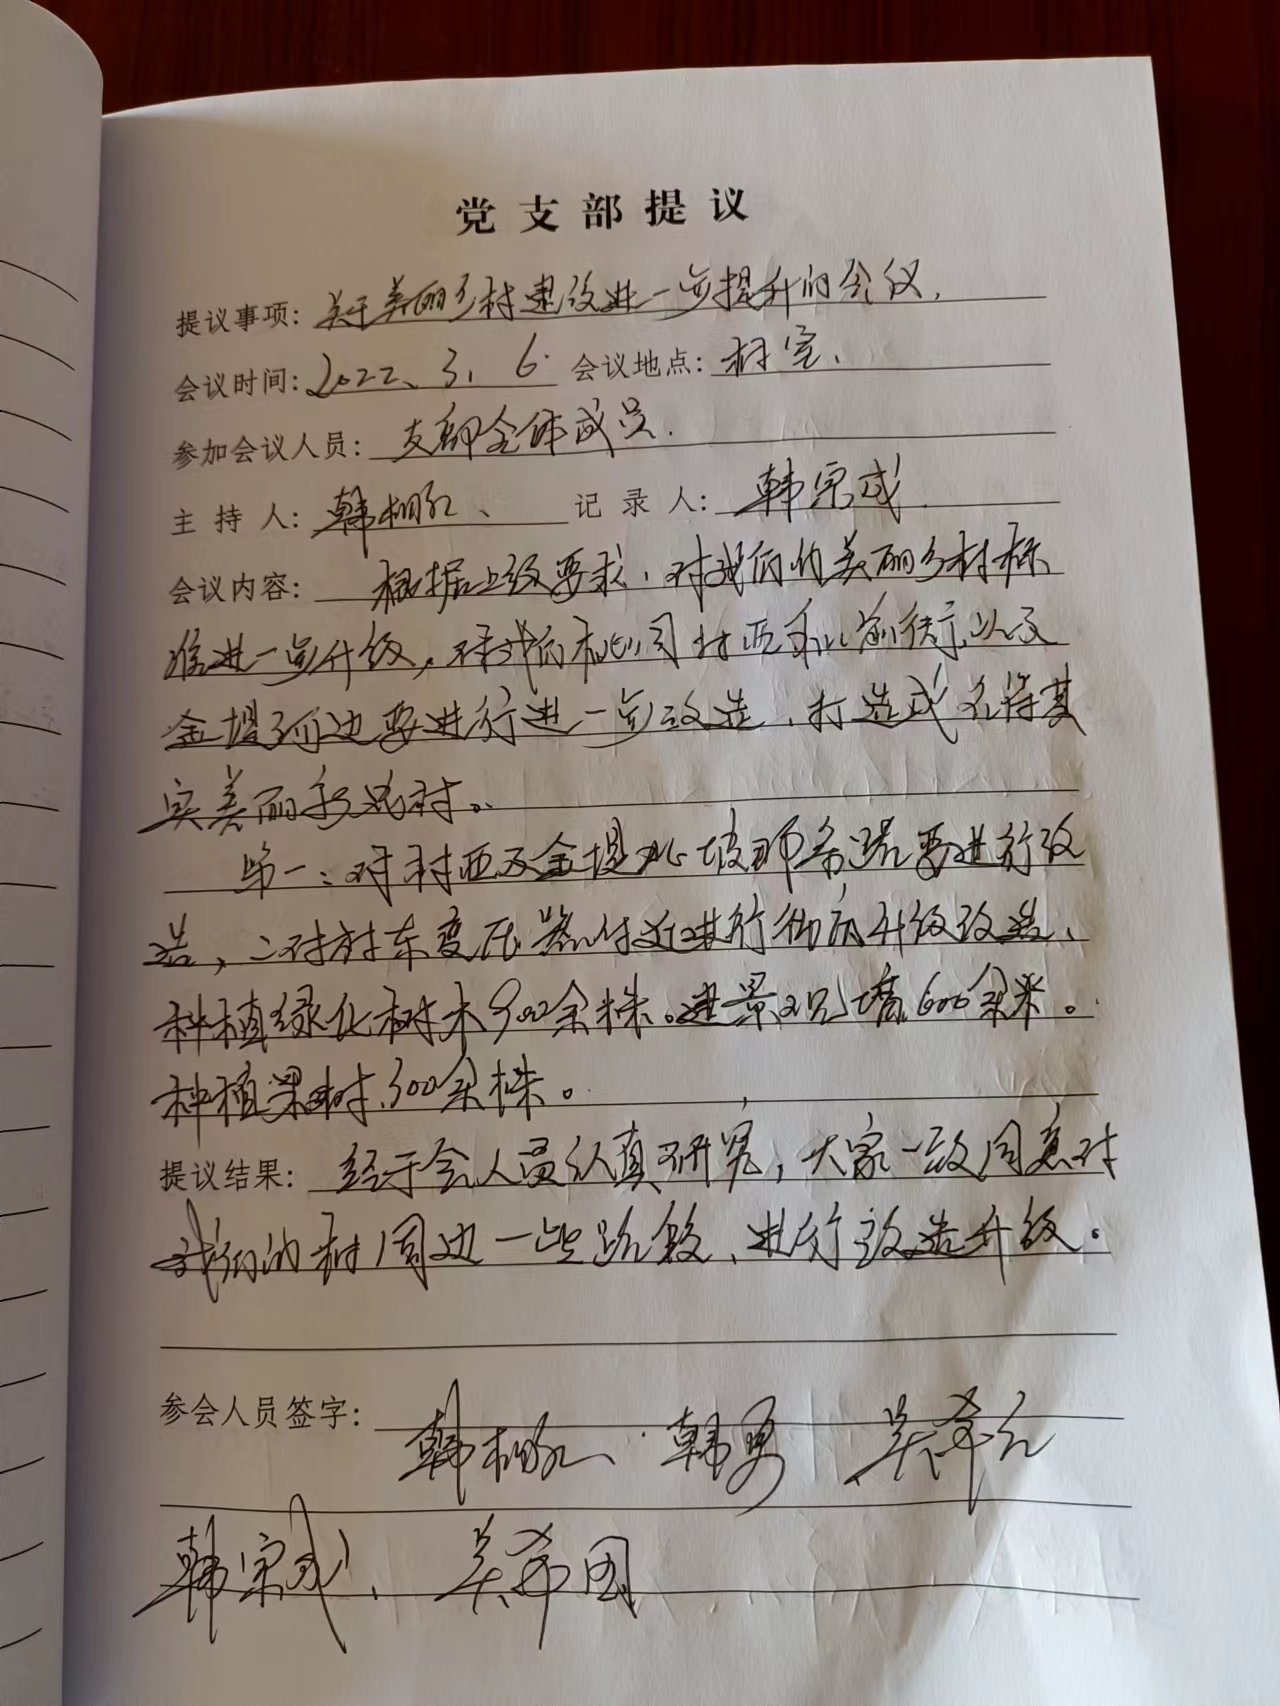 党支部提议
提议事项：关于美丽乡村建设进一步提升的会议.
会议时间：2022、3、6. 会议地点：村室.
参加会议人员：支部全体成员.
主持人：韩相、 记录人：韩宗成.
会议内容：根据上级要求，对我们的美丽乡村标
准进一步升级，对我们村西 以及
金堤河边要进行进一步改造，打造成名符其
实美丽示范村。
第一：对村西及金堤北坡那条路要进行改
造，二对村东变压器付近进行街面升级改造、
种植绿化树木900余株。建景观墙600余米。
种植果树300余株。
提议结果：经于会人员认真研究，大家一致同意对
我们的村周边一些路段、进行改造升级。
参会人员签字：
韩相 韩勇 吴希
韩宗成、吴希国